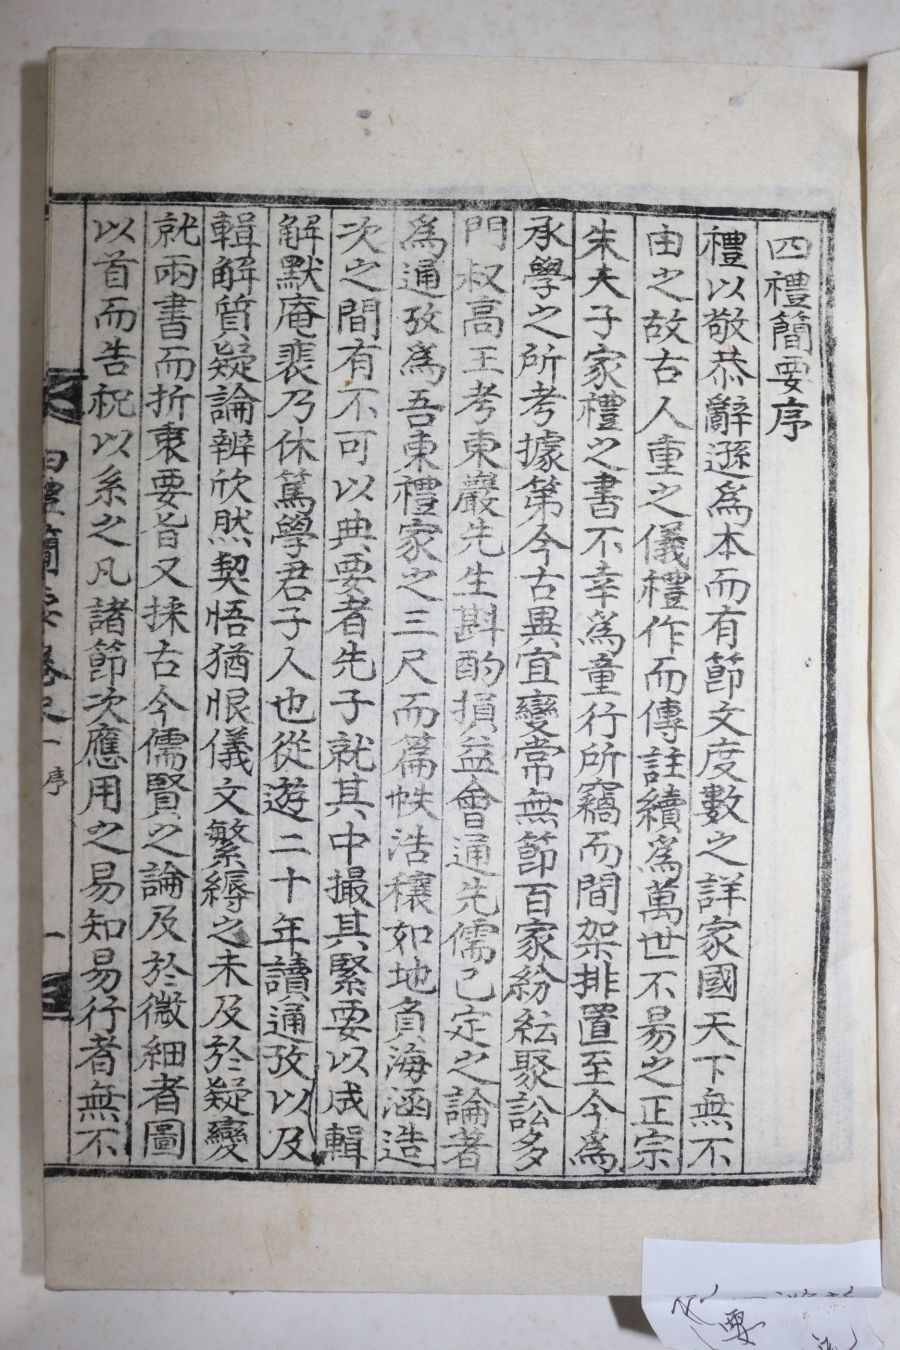 四禮簡要序
禮以敬恭辭遜爲本而有節文度數之詳家國天下無不
由之故古人重之儀禮作而傳註續爲萬世不易之正宗
朱夫子家禮之書不幸爲童行所竊而間架排置至今爲
承學之所考據第今古異宜變常無節百家紛紜聚訟多
門叔高王考東巖先生斟酌損益會通先儒已定之論著
爲通攷爲吾東禮家之三尺而篇帙浩穰如地負海涵造
次之間有不可以典要者先子就其中撮其緊要以成輯
解默庵裵乃休篤學君子人也從遊二十年讀通攷以及
輯解質疑論辨欣然契悟猶恨儀文繁縟之未及於疑變
就兩書而折衷要旨又採古今儒賢之論及於微細者圖
以首而告祝以系之凡諸節次應用之易知易行者無不
四禮簡要卷之一
序
一
要